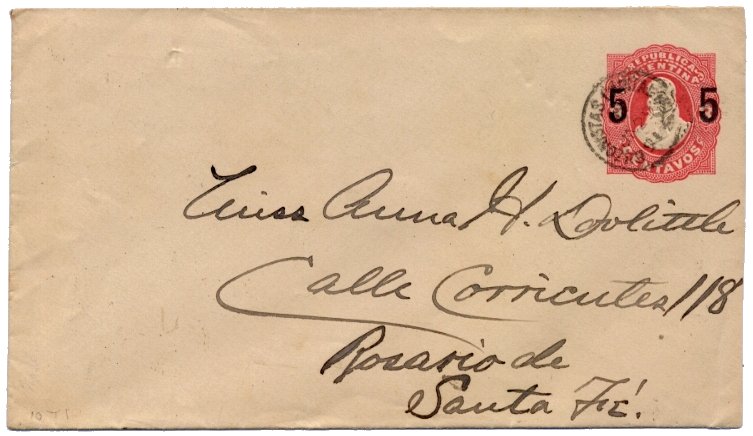 REPUBLICA
ARGENTINA
5 5
CENTAVOS
Miss Anna H. Dolittle
Calle Corrientes 118
Rosario de
Santa Fé.